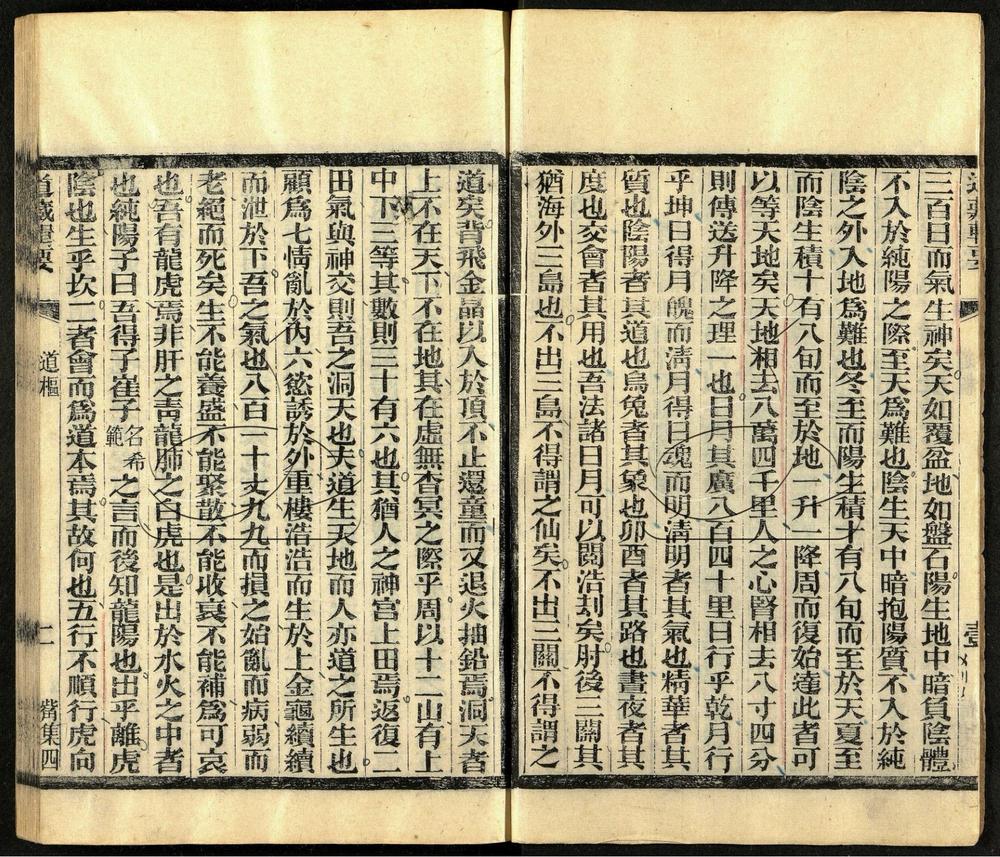 三百日而氣生神矣天如覆盆地如盤石陽生地中暗負陰體
不入於純陽之際至天爲難也陰生天中暗抱陽質不入於純
陰之外入地爲難也冬至而陽生積才有八旬而至於天夏至
而陰生積十有八旬而至於地一升一降周而復始達此者可
以等天地矣天地相去八萬四千里人之心腎相去八寸四分
則傳送升降之理一也日月其廣八百四十里日行乎乾月行
乎坤日得月魄而淸月得日魂而明淸明者其氣也精華者其
質也陰陽者其道也烏兔者其象也卯酉者其路也晝夜者其
度也交會者其用也吾法諸日月可以閱浩刼矣肘後三關其
猶海外三島也不出三島不得謂之仙矣不出三關不得謂之
道矣背飛金晶以入於頂不止還童而又退火抽鉛焉洞天者
上不在天下不在地其在虛無杳冥之際乎周以十二山有上
中下三等其數則三十有六也其猶人之神宮上田焉返復二
田氣與神交則吾之洞天也夫道生天地而人亦道之所生也
顧爲七情亂於內六慾誘於外重樓浩浩而生於上金龜續續
而泄於下吾之氣也八百一十丈九九而損之始亂而病弱而
老絕而死矣生不能養盛不能聚散不能收衰不能補爲可哀
也吾有龍虎焉非肝之靑龍肺之白虎也是出於水火之中者
也純陽子曰吾得子崔子名希範之言而後知龍陽也出乎離虎
陰也生乎坎二者會而爲道本焉其故何也五行不順行虎向
道藏輯要
道樞
二
觜集四